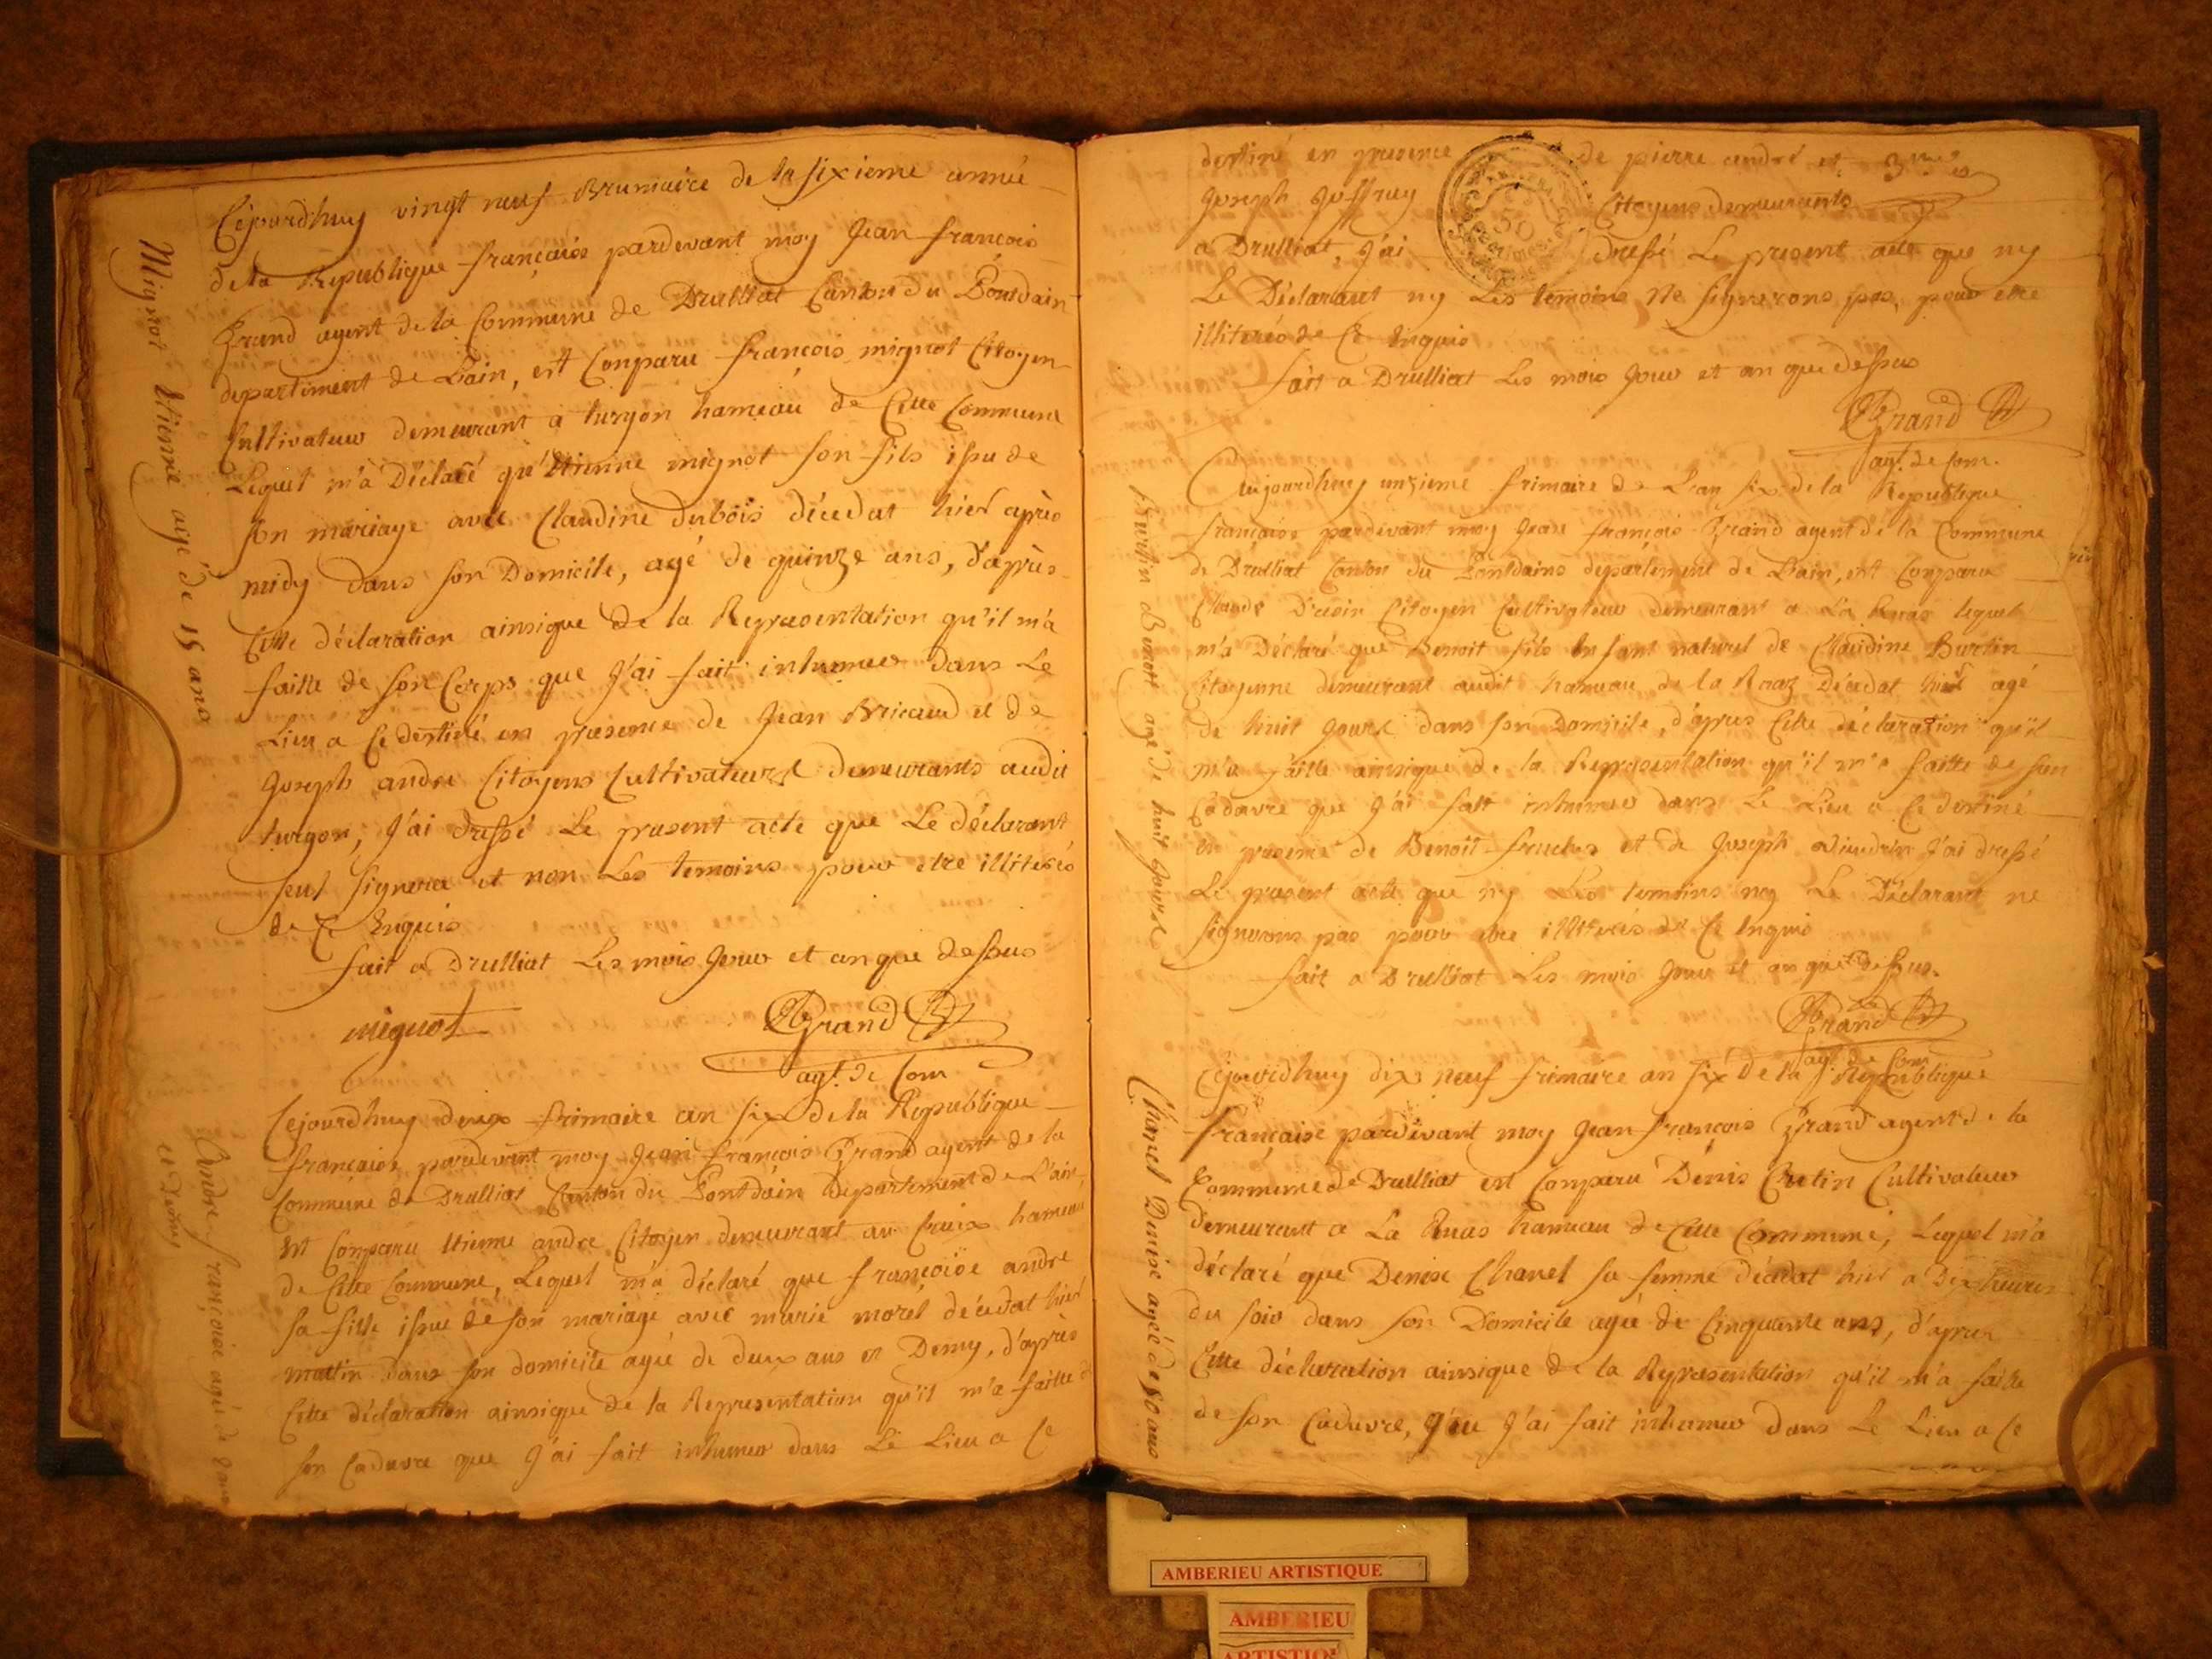 Cejourd'huy vingt neuf Brumaire de la sixieme année
de la Republique française pardevant moy Jean françois
Brand agent de la Commune de Drulliat Canton du Pontdain
departement de Lain, est Conparu françois mignot Citoyen
Cultivateur demeurant a turgon hameau de Cette Commune
Lequel m'a Déclaré qu'Etienne mignot son fils issu de
son mariage avec Claudine dubois décedat hier après
midy dans son Domicile, agé de quinze ans, d'après
Cette déclaration ainsique de la Representation qu'il m'a
faitte de son Corps que J'ai fait inhumer dans Le
Lieu a Ce destiné en presence de Jean Bricaud et de
Joseph andre Citoyens Cultivateurs demeurants audit
turgon, J'ai dressé Le present acte que Le déclarant
seul signera et non Les temoins pour etre illiterés
de Ce Enquis
fait a Drulliat Les mois Jour et an que dessus
mignot Brand
agt. de Com
Mignot Etienne agé de 15 ans
Cejourd'huy deux frimaire an six de la Republique
française pardevant moy Jean françois Brand agent de la
Commune de Drulliat Canton du Pontdain Departement de L'ain,
est Conparu Etienne andre Citoyen demeurant au hameau
de Cette Commune, Lequel m'a déclaré que françoise andre
sa fille issue de son mariage avec marie morel décedat hier
mattin dans son domicile agée de deux ans et Demy, d'après
Cette déclaration ainsique de la Representation qu'il m'a faitte
son Cadavre que J'ai fait inhumer dans Le Lieu a Ce
Andre françoise agée de 2 ans
et Demy
destiné en presence de pierre andré et
Joseph Joffray Citoyens demeurants
a Drulliat, J'ai dressé Le present acte que ny
Le Déclarant ny Les temoins Ne signerons pas, pour etre
illiterés de Ce Enquis
fait a Drulliat Les mois Jour et an que dessus
Brand
agt. de Com.
50
Aujourdhuy unzieme frimaire de Lan six de la Republique
française pardevant moy Jean françois Brand agent de la Commune
de Drulliat Canton du Pontdains departement de Lain, est Conparu
Claude Citoyen Cultivateur demeurant a La Ruas lequel
m'a Déclaré que Benoit fils Enfant naturel de Claudine Burtin
Citoyenne demeurant audit hameau de la Decedat hier agé
de huit Jours dans son Domicile, d'après Cette déclaration qu'il
m'a faitte ainsique de la Representation qu'il m'a faitte de son
Cadavre que J'ai fait inhumer dans Le Lieu a Ce destiné
en presence de Benoit et de Joseph J'ai dressé
Le present acte que ny Les temoins ny Le Déclarant ne
signerons pas pour etre illiterés de Ce Enquis
fait a Drulliat Les mois Jour et an que dessus.
Brand
agt. de Com
Burtin Benoit agé de huit Jours
Cejourdhuy dix neuf frimaire an six de la Republique
française pardevant moy Jean françois Brand agent de la
Commune de Drulliat est Conparu Dénis Cretin Cultivateur
demeurant a La Ruas hameau de Cette Commune, Lequel m'a
déclaré que Denise Chanel sa femme décedat hier a Dix heures
du soir dans son Domicile agée de Cinquante ans, d'après
Cette déclaration ainsique de la Representation qu'il m'a faitte
de son Cadavre, que J'ai fait inhumer dans Le Lieu a Ce
Chanel Denise agée de 50 ans
AMBERIEU ARTISTIQUE
AMBERIEU
ARTISTIQUE